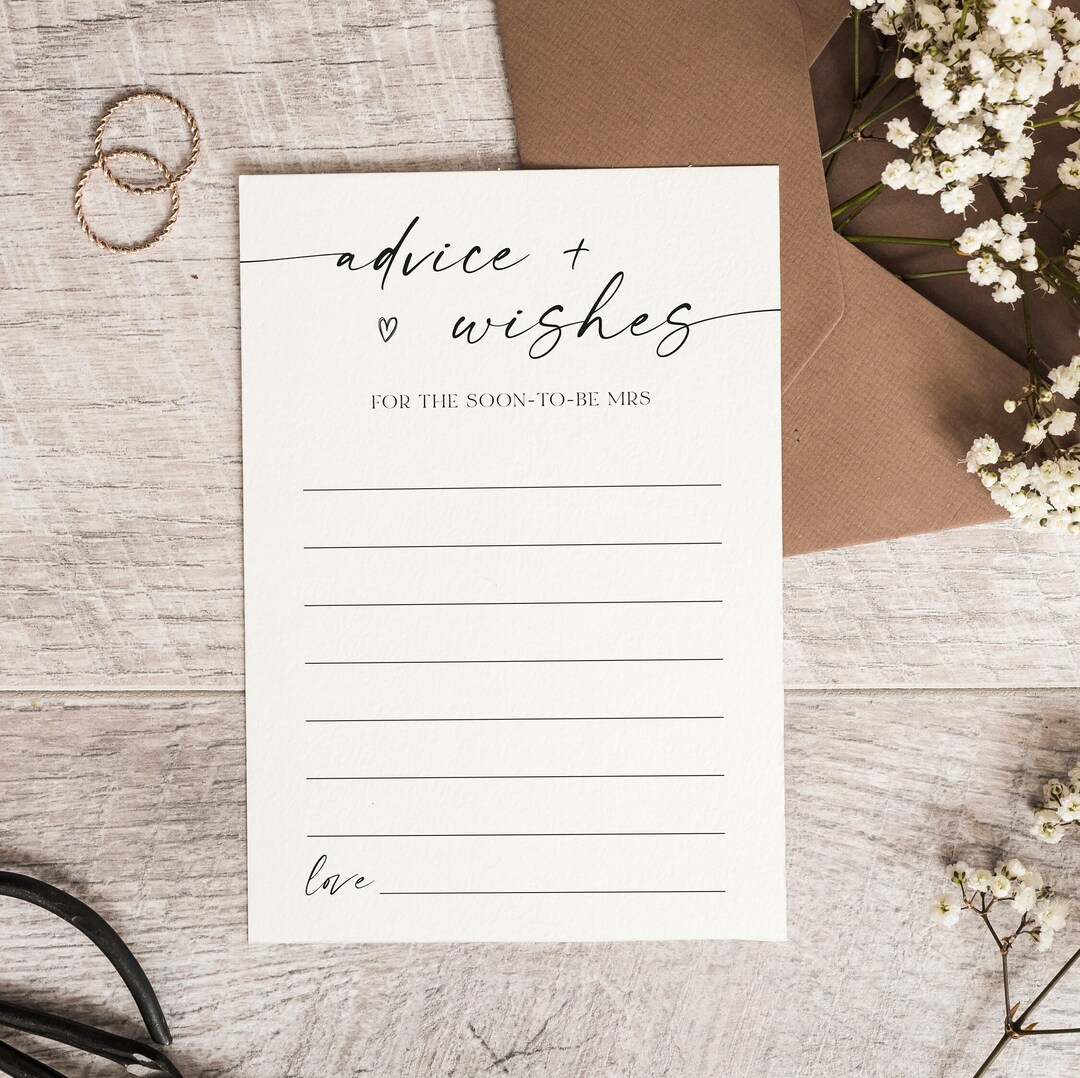 advice +
♡ wishes
FOR THE SOON-TO-BE MRS
love